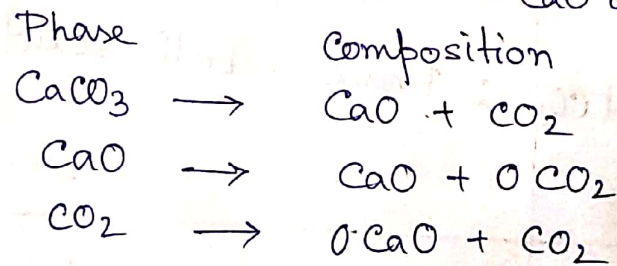 CaO
Phase Composition
CaCO3 → CaO + CO2
CaO → CaO + O CO2
CO2 → O·CaO + CO2